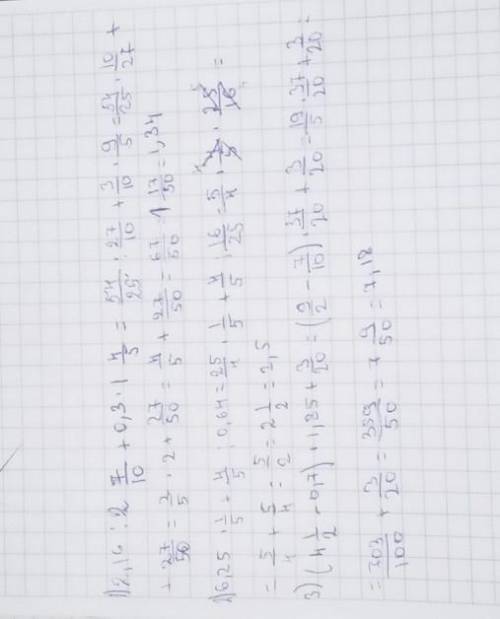 1) 2,16 : 2 7/10 + 0,3 · 1 4/5 = 54/25 : 27/10 + 3/10 · 9/5 = 54/25 · 10/27 +
+ 27/50 = 2/5 · 2 + 27/50 = 4/5 + 27/50 = 67/50 = 1 17/50 = 1,34
2) 6,25 · 1/5 + 4/5 : 0,64 = 25/4 · 1/5 + 4/5 : 16/25 = 5/4 · 4/5 · 25/16 =
= 5/4 + 5/4 = 5/2 = 2 1/2 = 2,5
3) (4 1/2 - 0,7) · 1,85 + 3/20 = (9/2 - 7/10) · 37/20 + 3/20 = 19/5 · 37/20 + 3/20 =
= 703/100 + 3/20 = 359/50 = 7 9/50 = 7,18